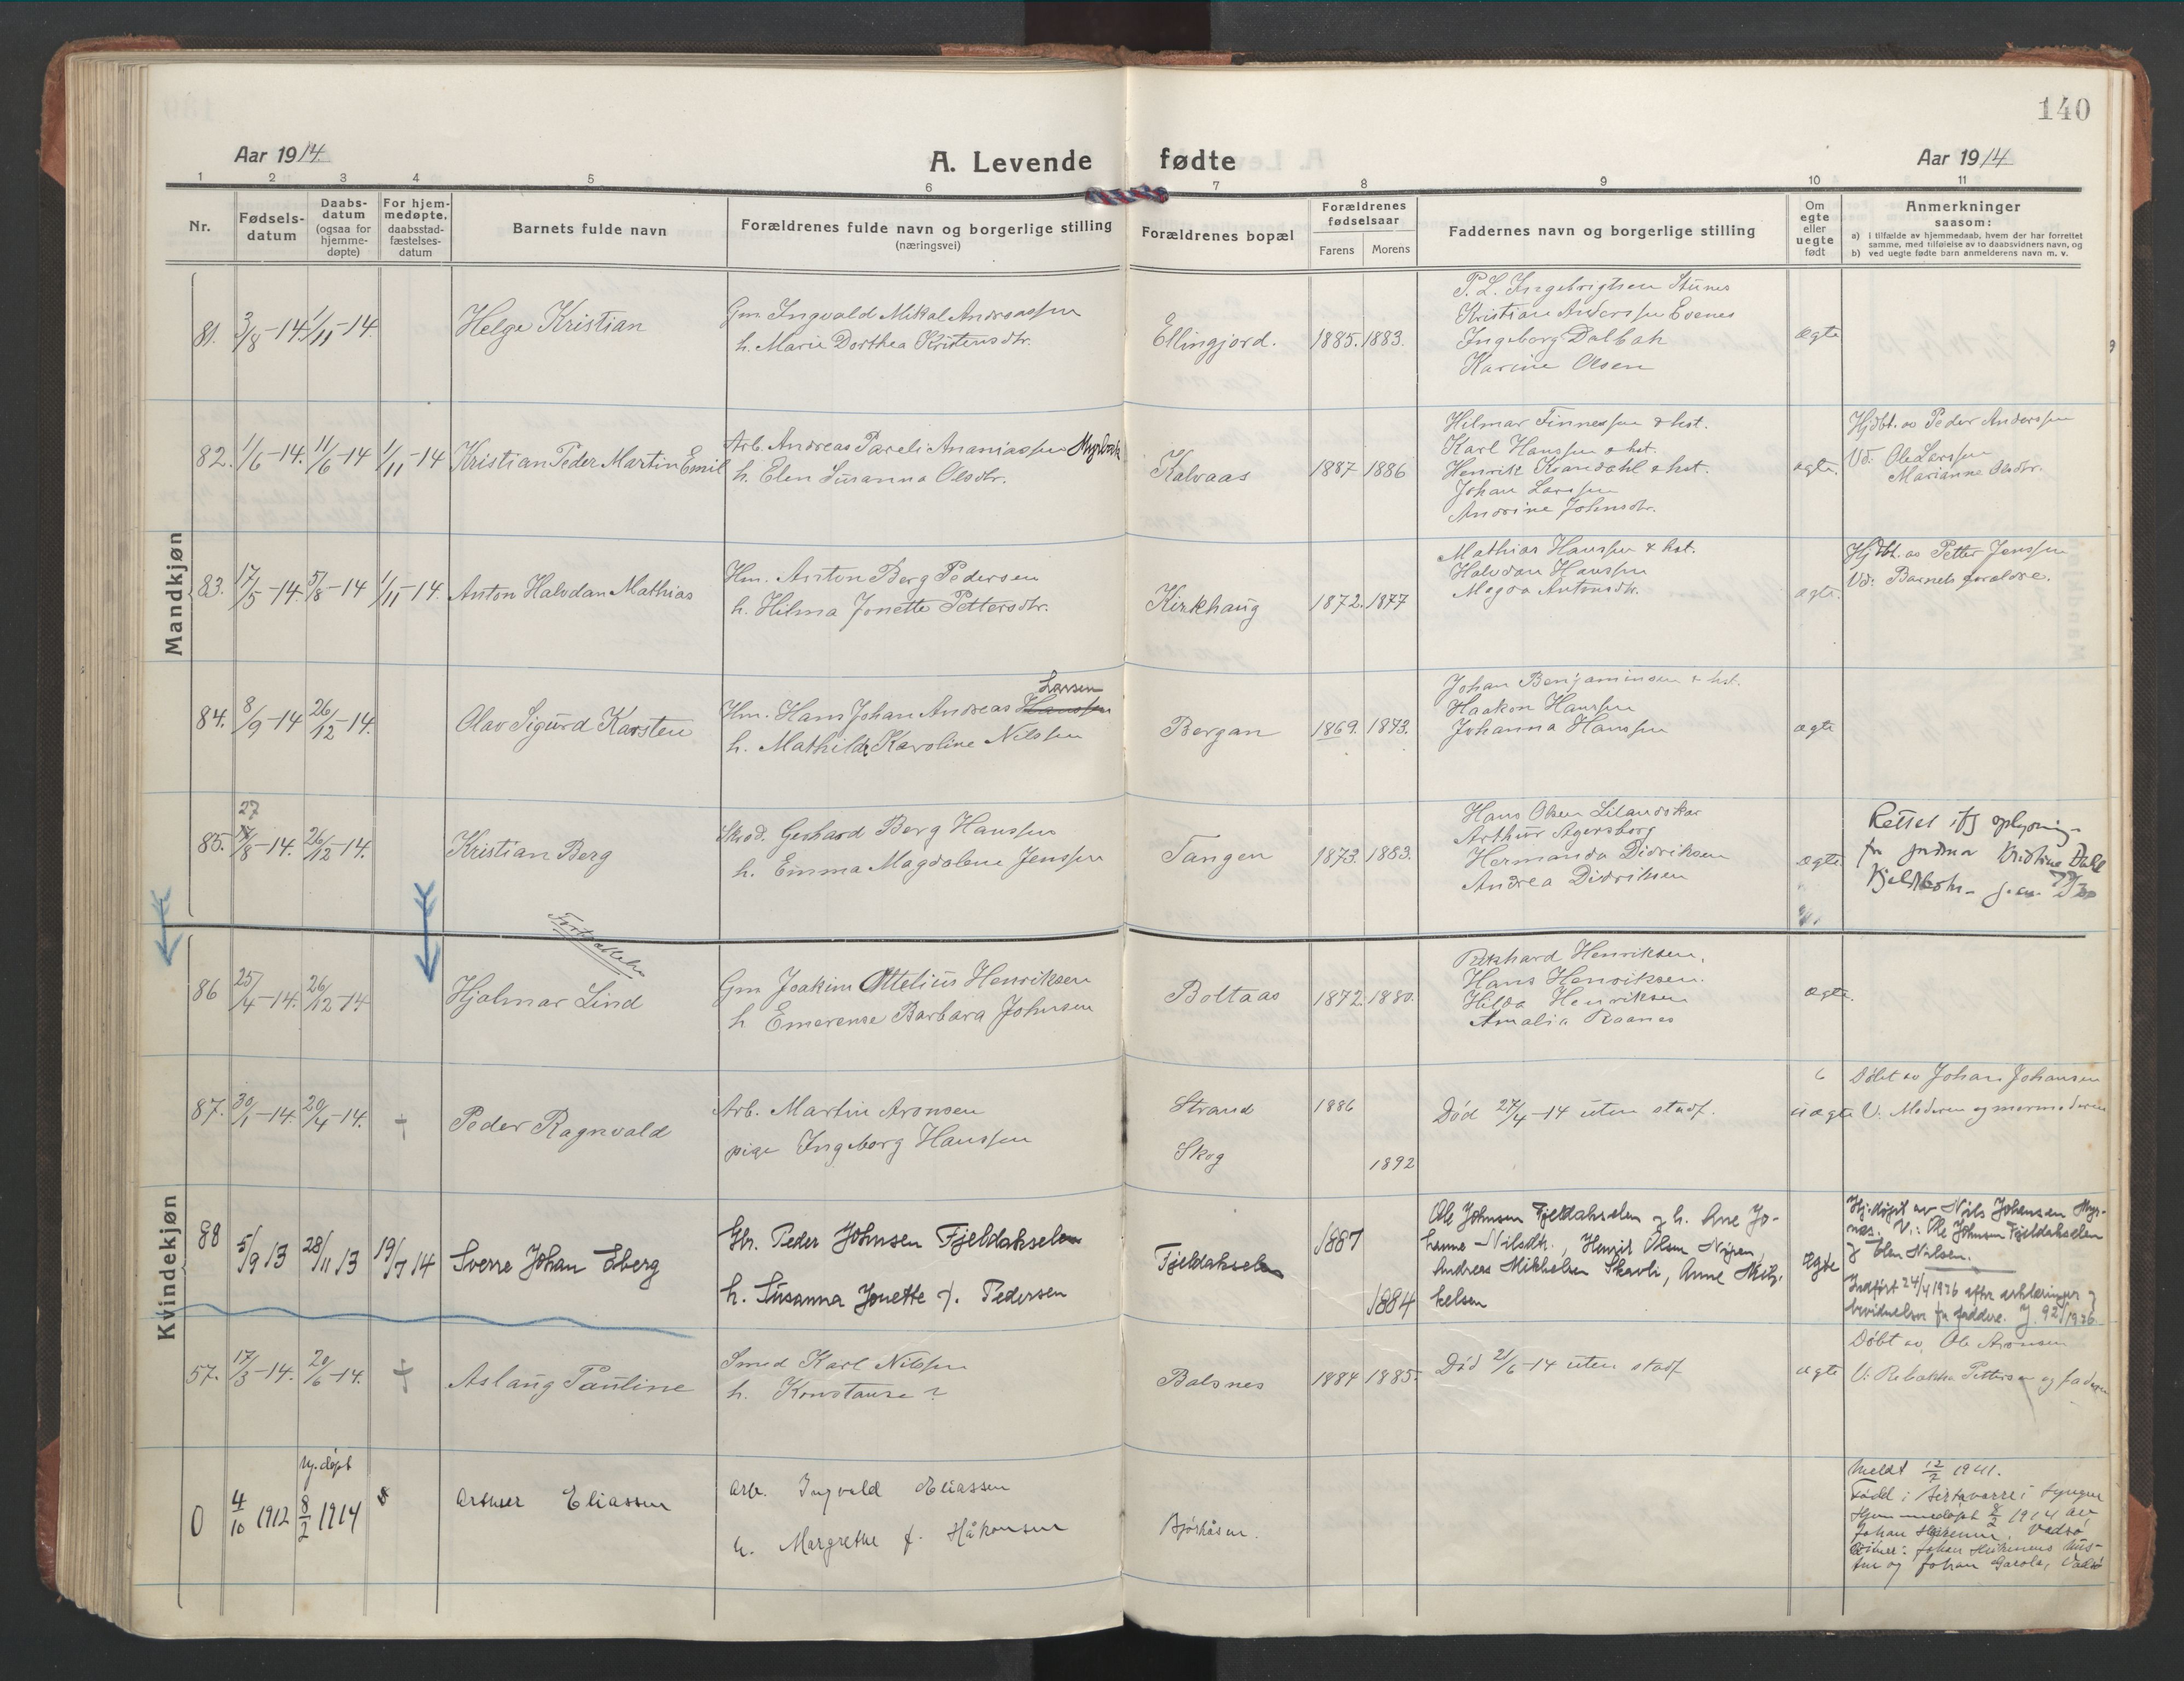 140
Aar 1914
A. Levende fødte
Aar 1914
1 2 3 4 5 6 7 8 9 10 11
Nr.
Fødsels-
datum
Daabs-
datum
(ogsaa for
hjemme-
døpte)
For hjem-
medøpte,
daabsstad-
fæstelses-
datum
Barnets fulde navn
Forældrenes fulde navn og borgerlige stilling
(næringsvei)
Forældrenes bopæl
Forældrenes
fødselsaar
Farens Morens
Faddernes navn og borgerlige stilling
Om
egte
eller
uegte
født
Anmerkninger
saasom:
a) i tilfælde av hjemmedaab, hvem der har forrettet
samme, med tilføielse av to daabsvidners navn, og
b) ved uegte fødte barn anmelderens navn m. v.
Mandkjøn
81. 3/8-14. 1/11-14. Helge Kristian
Gm. Ingvald Mikal Andreassen
h. Marie Dorthea Kristensdtr.
Ellingjord. 1885. 1883.
P. L. Ingebrigtsen Stunes
Kristian Anderssen Evenes
Ingeborg Dalbak
Karine Olsen
ægte
82. 1/6-14. 11/6-14 1/11-14 Kristian Peder Martin Emil
Arb. Andreas Pareli Ananiassen Myrbak
h. Elen Susanna Olsdtr.
Kalvaas 1887 1886
Hilmar Finnessen & hst.
Karl Hanssen & hst.
Henrik Kvandahl & hst.
Johan Larssen
Andrine Johnsdtr.
ægte.
Hjdbt. av Peder Anderssen
Vd: Ole Larssen
Marianne Olsdtr.
83. 17/5-14. 5/8-14 1/11-14. Anton Halvdan Mathias
Hm. Anton Berg Pedersen
h. Hilma Jonette Pettersdtr.
Kirkhaug 1872. 1877
Mathias Hanssen & hst.
Halvdan Hanssen
Magda Antonsdtr.
ægte.
Hjdbt. av Petter Jenssen
Vd: Barnets forældre.
84. 8/9-14 26/12-14. Olav Sigurd Karsten
Larsen
Hm. Hans Johan Andreas Hanssen
h. Mathilde Karoline Nilssen
Bergan 1869. 1873.
Johan Benjaminsen & hst.
Haakon Hanssen
Johanna Hanssen
ægte
27
85. 17/8-14. 26/12-14. Kristian Berg
Skræd. Gerhard Berg Hanssen
h. Emma Magdalene Jenssen
Tangen 1873. 1883.
Hans Olsen Lilandskar
Arthur Agersborg
Hermanda Didriksen
Andrea Didriksen
ægte.
Rettet iflg oplysning
fra jordmor Kristine Dahl
Fortsættelse
Kvindekjøn
86 25/4-14. 26/12-14 Hjalmar Lind
Gm Joakim Ottelius Henriksen
h Emerense Barbara Johnsen
Boltaas 1872. 1880.
Rikhard Henriksen.
Hans Henriksen.
Hilda Henriksen
Amalia Raanes
ægte.
87. 30/1-14. 20/4-14. + Peder Ragnvald
Arb. Martin Aronsen
pige Ingeborg Hanssen
Strand 1886
Skog 1892
Død 27/4-14 uten stadf.
uægte
Døbt av Johan Johansen
V: Moderen og mormoderen
88 5/9 13 28/11 13 19/7 14 Sverre Johan Eberg
Gbr. Peder Johnsen Fjeldakselen
h. Susanna Jonette f. Pedersen
Fjeldakselen 1887
1884
Ole Johnsen Fjeldakselen og h. Ane Jo-
hanne Nilsdtr., Henrik Olsen Nipen,
Andreas Mikkelsen Skavli, Anne Mik-
kelsen
Ægte
Hj.døpt av Nils Johansen Myr-
nes. V.: Ole Johnsen Fjeldakselen
og Elen Nilsen.
Indført 24/4 1926 efter erklæringer og
bevidnelser fra faddere. J. 92/1926
57. 17/3-14. 20/6-14. + Aslaug Pauline
Smed Karl Nilssen
h. Konstanse ?
Balsnes 1884 1885.
Død 21/6-14 uten stadf
ægte
Døbt av Ole Aronsen
V: Rebakka Pettersen og faderen
hj.døpt
0 4/10 1912 8/2 1914 Artuer Eliassen
Arb. Ingvald Eliassen
h. Margrethe f. Håkonsen
Bjørkåsen.
Meldt 12/2 1941.
Født i Birtavarre i Lyngen
Hjemmedøpt 8/2 1914 av
Johan Heikenen, Vadsø
Vitner: Johan Heikenens hus-
tru og Johan Garola, Vadsø